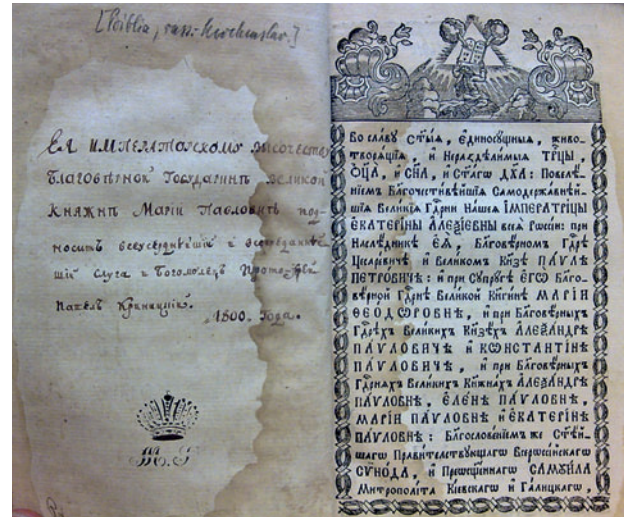 [Biblia, russ. Kirchenslav.]
ЕЯ ИМПЕРАТОРСКОМУ высочеству
Благовѣрной Государинѣ великой
Княжнѣ Маріи Павловнѣ под-
носитъ всеусерднѣйшій и
шій слуга и Богомолецъ Прото-Іерей
Павелъ Криницкій.
1800. Года.
Во сла́ву Ст҃ы́ѧ, Е҆диносꙋ́щныѧ, живо-
творѧ́щїѧ, и҆ Нераздѣ́лимыѧ ТРЦ҃Ы,
Ѻ҆Ц҃А̀, и҆ СН҃А, и҆ СТА́ГѠ ДХ҃А: Повелѣ́-
нїемъ Благочести́вѣйшїѧ Самодержа́внѣй-
шїѧ Вели́кїѧ Гд҃рни На́шеѧ І҆МПЕРАТРІ́ЦЫ
Е҆КАТЕРІ́НЫ А҆ЛЕѮІ́ЕВНЫ всеѧ̀ Рѡссі́и: при
Наслѣ́дникѣ Е҆Ѧ̀, Бл҃говѣ́рномъ Гд҃рѣ
Цесаре́вичѣ и҆ Вели́комъ Кн҃зѣ ПА́ѴЛѢ
ПЕТРО́ВИЧѢ: и҆ при Сꙋпрꙋ́гѣ Е҆ГѠ̀ Бл҃го-
вѣ́рной Гд҃рнѣ Вели́кой Кнги́нѣ МАРІ́И
ѲЕОДѠРОВНѢ, и҆ при Бл҃говѣ́рныхъ
Гд҃рѣхъ Вели́кихъ Кн҃зѣхъ А҆ЛЕѮА́НДРѢ
ПА́ѴЛОВИЧѢ и҆ КѠНСТАНТІ́НѢ
ПА́ѴЛОВИЧѢ, и҆ при Бл҃говѣ́рныхъ
Гд҃рнѧхъ Вели́кихъ Кнѧжна́хъ А҆ЛЕѮА́НДРѢ
ПА́ѴЛОВНѢ, Е҆ЛЕ́НѢ ПА́ѴЛОВНѢ,
МАРІ́И ПА́ѴЛОВНѢ и҆ Е҆КАТЕРІ́НѢ
ПА́ѴЛОВНѢ: Бл҃гослове́нїемъ же Ст҃ѣ́й-
шагѡ Прави́телствꙋющагѡ Всерѡссі́йскагѡ
СѴНО́ДА, и҆ Преѡсщ҃е́ннагѡ САМꙊИ́ЛА
Митрополі́та Кі́евскагѡ и҆ Га́лицкагѡ,